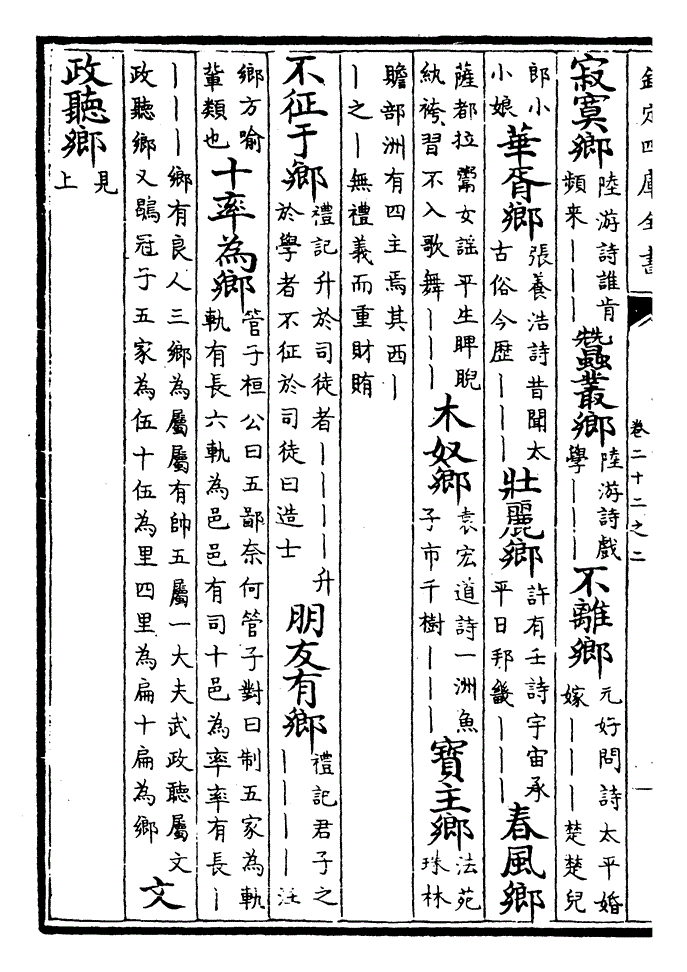 欽定四庫全書
卷二十二之二
寂寞鄉陸游詩誰肯頻來｜｜｜蠶叢鄉陸游詩戲學｜｜｜不離鄉元好問詩太平婚嫁｜｜｜楚楚兒
郎小小娘華胥鄉張養浩詩昔聞太古俗今歷｜｜｜壯麗鄉許有壬詩宇宙承平日邦畿｜｜｜春風鄉
薩都拉鬻女謡平生睥睨紈袴習不入歌舞｜｜｜木奴鄉袁宏道詩一洲魚子市千樹｜｜｜寶主鄉法苑珠林
贍部洲有四主焉其西｜｜之｜無禮義而重財賄
不征于鄉禮記升於司徒者｜｜｜｜升於學者不征於司徒曰造士朋友有鄉禮記君子之｜｜｜｜注
鄉方喻輩類也十率為鄉管子桓公曰五鄙奈何管子對曰制五家為軌軌有長六軌為邑邑有司十邑為率率有長｜
｜｜｜鄉有良人三鄉為屬屬有帥五屬一大夫武政聽屬文政聽鄉又鶡冠子五家為伍十伍為里四里為扁十扁為鄉文
政聽鄉見上